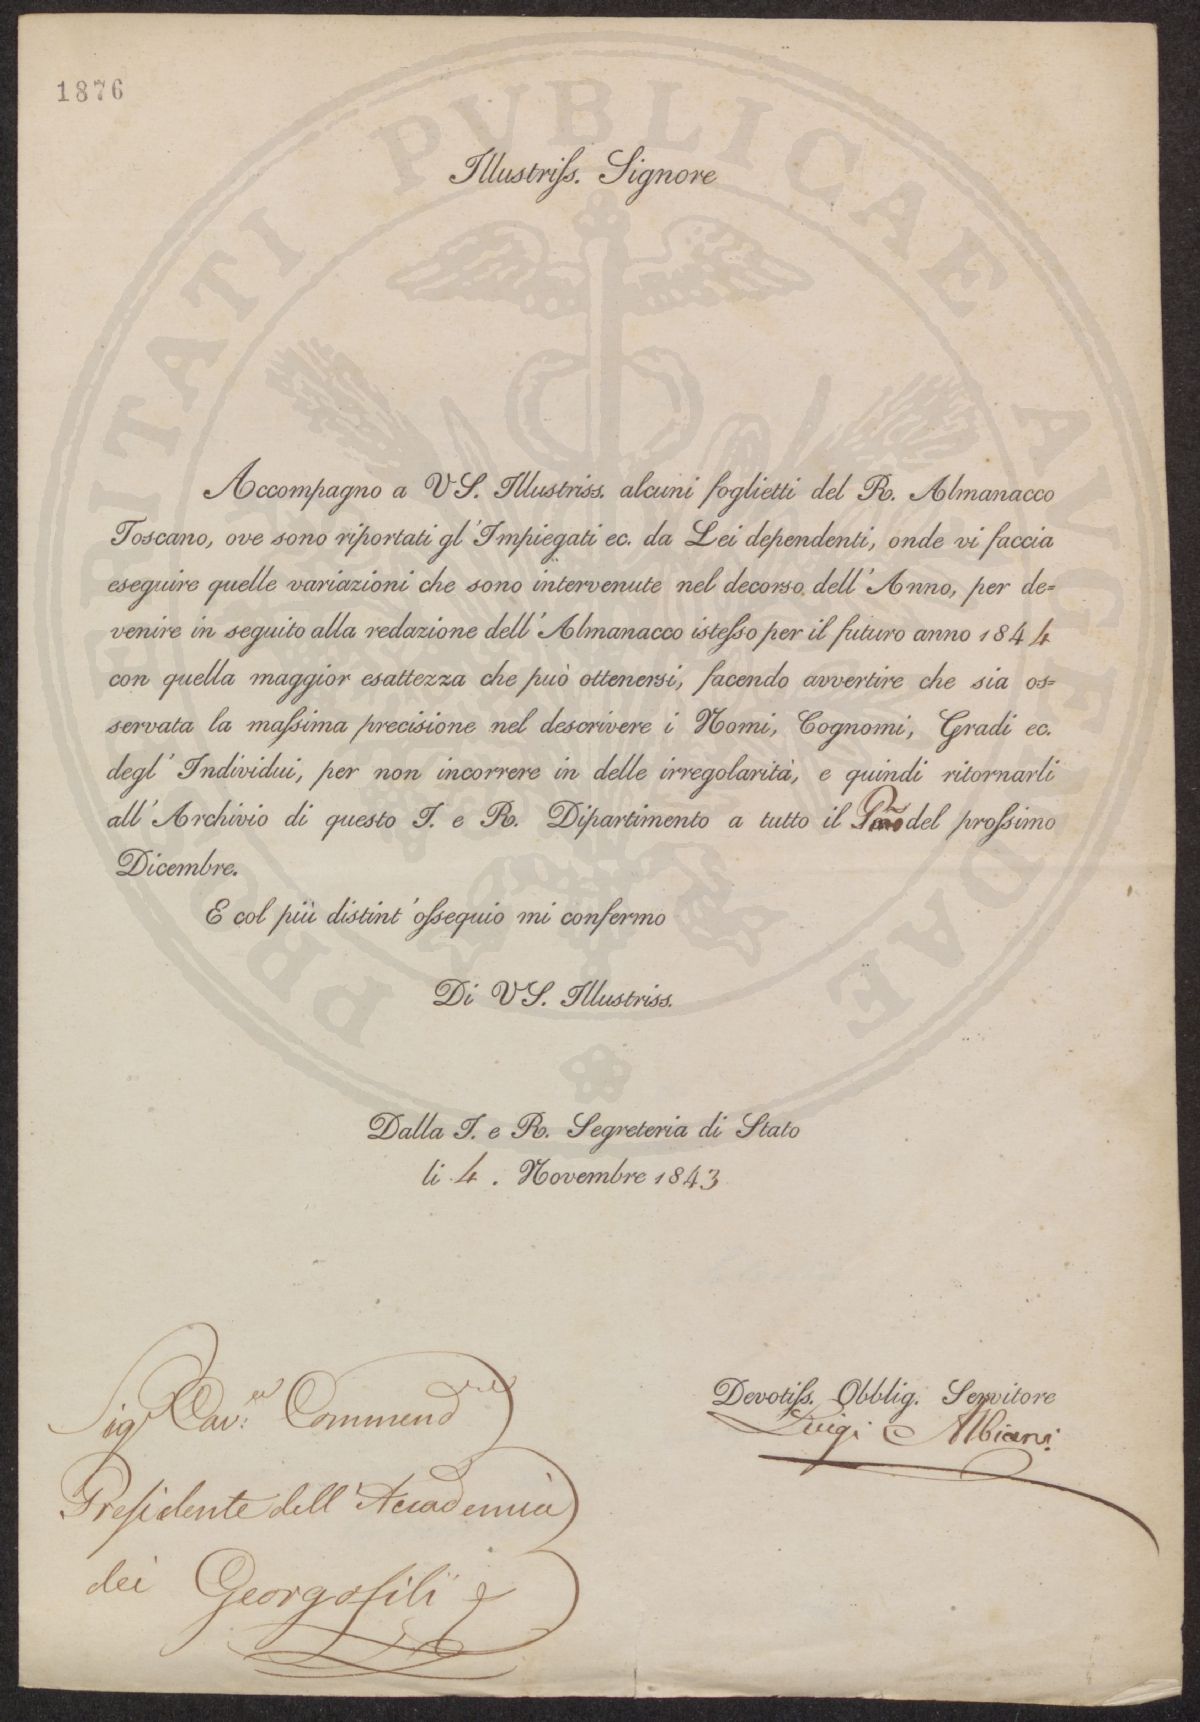 1876
PROSPERITATI PUBLICAE AUGENDAE
Illustriſs. Signore
Accompagno a VS. Illustriss. alcuni foglietti del R. Almanacco
Toscano, ove sono riportati gl'Impiegati ec. da Lei dependenti, onde vi faccia
eseguire quelle variazioni che sono intervenute nel decorso dell'Anno, per de=
venire in seguito alla redazione dell'Almanacco isteſso per il futuro anno 1844
con quella maggior esattezza che può ottenersi, facendo avvertire che sia os=
servata la maſsima precisione nel descrivere i Nomi, Cognomi, Gradi ec.
degl'Individui, per non incorrere in delle irregolarità, e quindi ritornarli
all'Archivio di questo I. e R. Dipartimento a tutto il del proſsimo
Dicembre.
E col più distint'oſsequio mi confermo
Di VS. Illustriss.
Dalla I. e R. Segreteria di Stato
li 4. Novembre 1843
Devotiſs. Obblig. Servitore
Luigi Albiani
Sigr Cav:er Commendre
Preſidente dell'Accademia
dei Georgofili